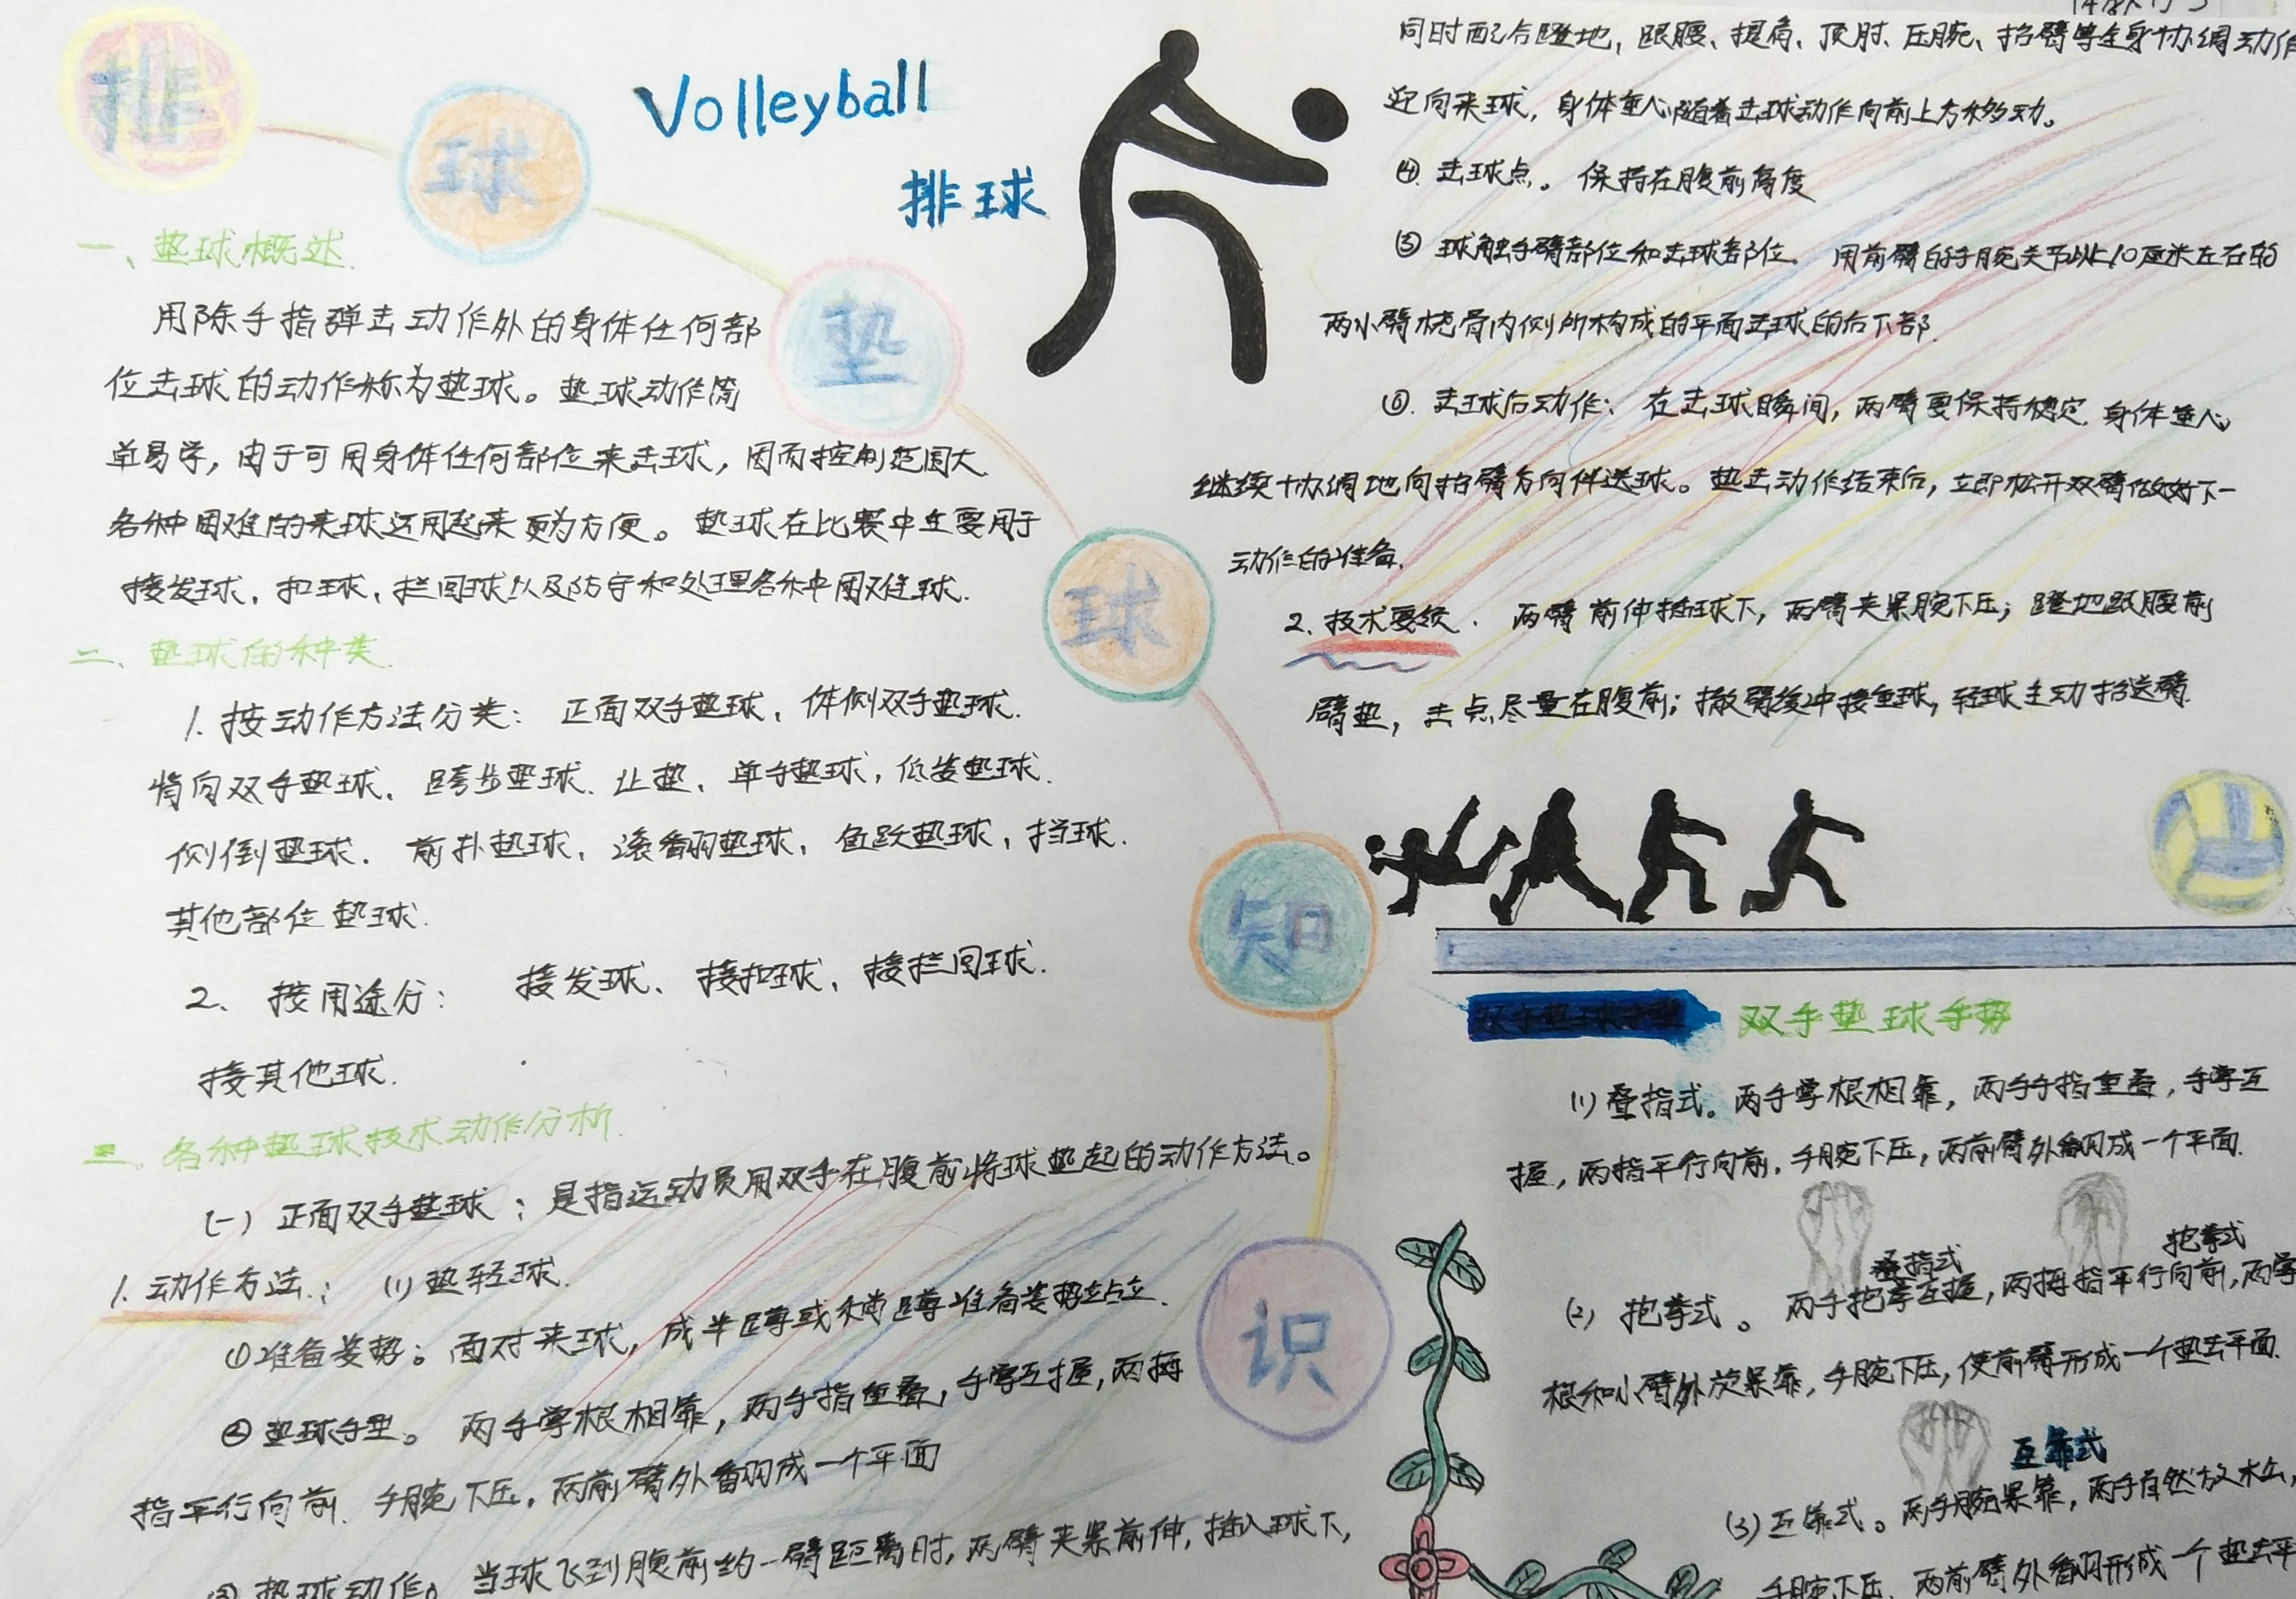 排球垫球知识
Volleyball
排球
一、垫球概述
用除手指弹击动作外的身体任何部
位击球的动作称为垫球。垫球动作简
单易学，由于可用身体任何部位来击球，因而控制范围大
各种困难的来球运用起来更为方便。垫球在比赛中主要用于
接发球、扣球、拦回球以及防守和处理各种困难球.
二、垫球的种类.
1.按动作方法分类：正面双手垫球、体侧双手垫球.
背向双手垫球、跨步垫球、让垫、单手垫球，低姿垫球.
侧倒垫球.前扑垫球、滚翻垫球，鱼跃垫球，挡球.
其他部位垫球.
2、按用途分：接发球、接扣球、接拦回球.
接其他球.
三、各种垫球技术动作分析.
(一)正面双手垫球：是指运动员用双手在腹前将球垫起的动作方法。
1.动作方法：(1)垫轻球.
①准备姿势：面对来球，成半蹲或稍蹲准备姿势站立.
②垫球手型。两手掌根相靠，两手指重叠，手掌互握，两拇
指平行向前.手腕下压，两前臂外翻成一个平面
③垫球动作。当球飞到腹前约一臂距离时，两臂夹紧前伸，插入球下，
同时配合蹬地，跟腰、提肩、顶肘、压腕、抬臂等全身协调动作
迎向来球，身体重心随着击球动作向前上方移动。
④击球点。保持在腹前高度
⑤球触手臂部位和击球部位.用前臂的手腕关节以上10厘米左右的
两小臂桡骨内侧所构成的平面击球的后下部.
⑥.击球后动作：在击球瞬间，两臂要保持稳定.身体重心
继续协调地向抬臂方向伴送球。垫击动作结束后，立即松开双臂做好下一
动作的准备.
2.技术要领.两臂前伸插球下，两臂夹紧腕下压；蹬地跟腰前
臂垫，击点尽量在腹前；撤臂缓冲接重球，轻球主动抬送臂.
双手垫球手势
(1)叠指式。两手掌根相靠，两手手指重叠，手掌互
握，两指平行向前，手腕下压，两前臂外翻成一个平面.
叠指式
抱拳式
(2)抱拳式。两手抱拳互握，两拇指平行向前，两掌
根和小臂外旋紧靠，手腕下压，使前臂形成一个垫击平面.
互靠式
(3)互靠式。两手腕紧靠，两手自然放松，
手腕下压、两前臂外翻形成一个垫击平